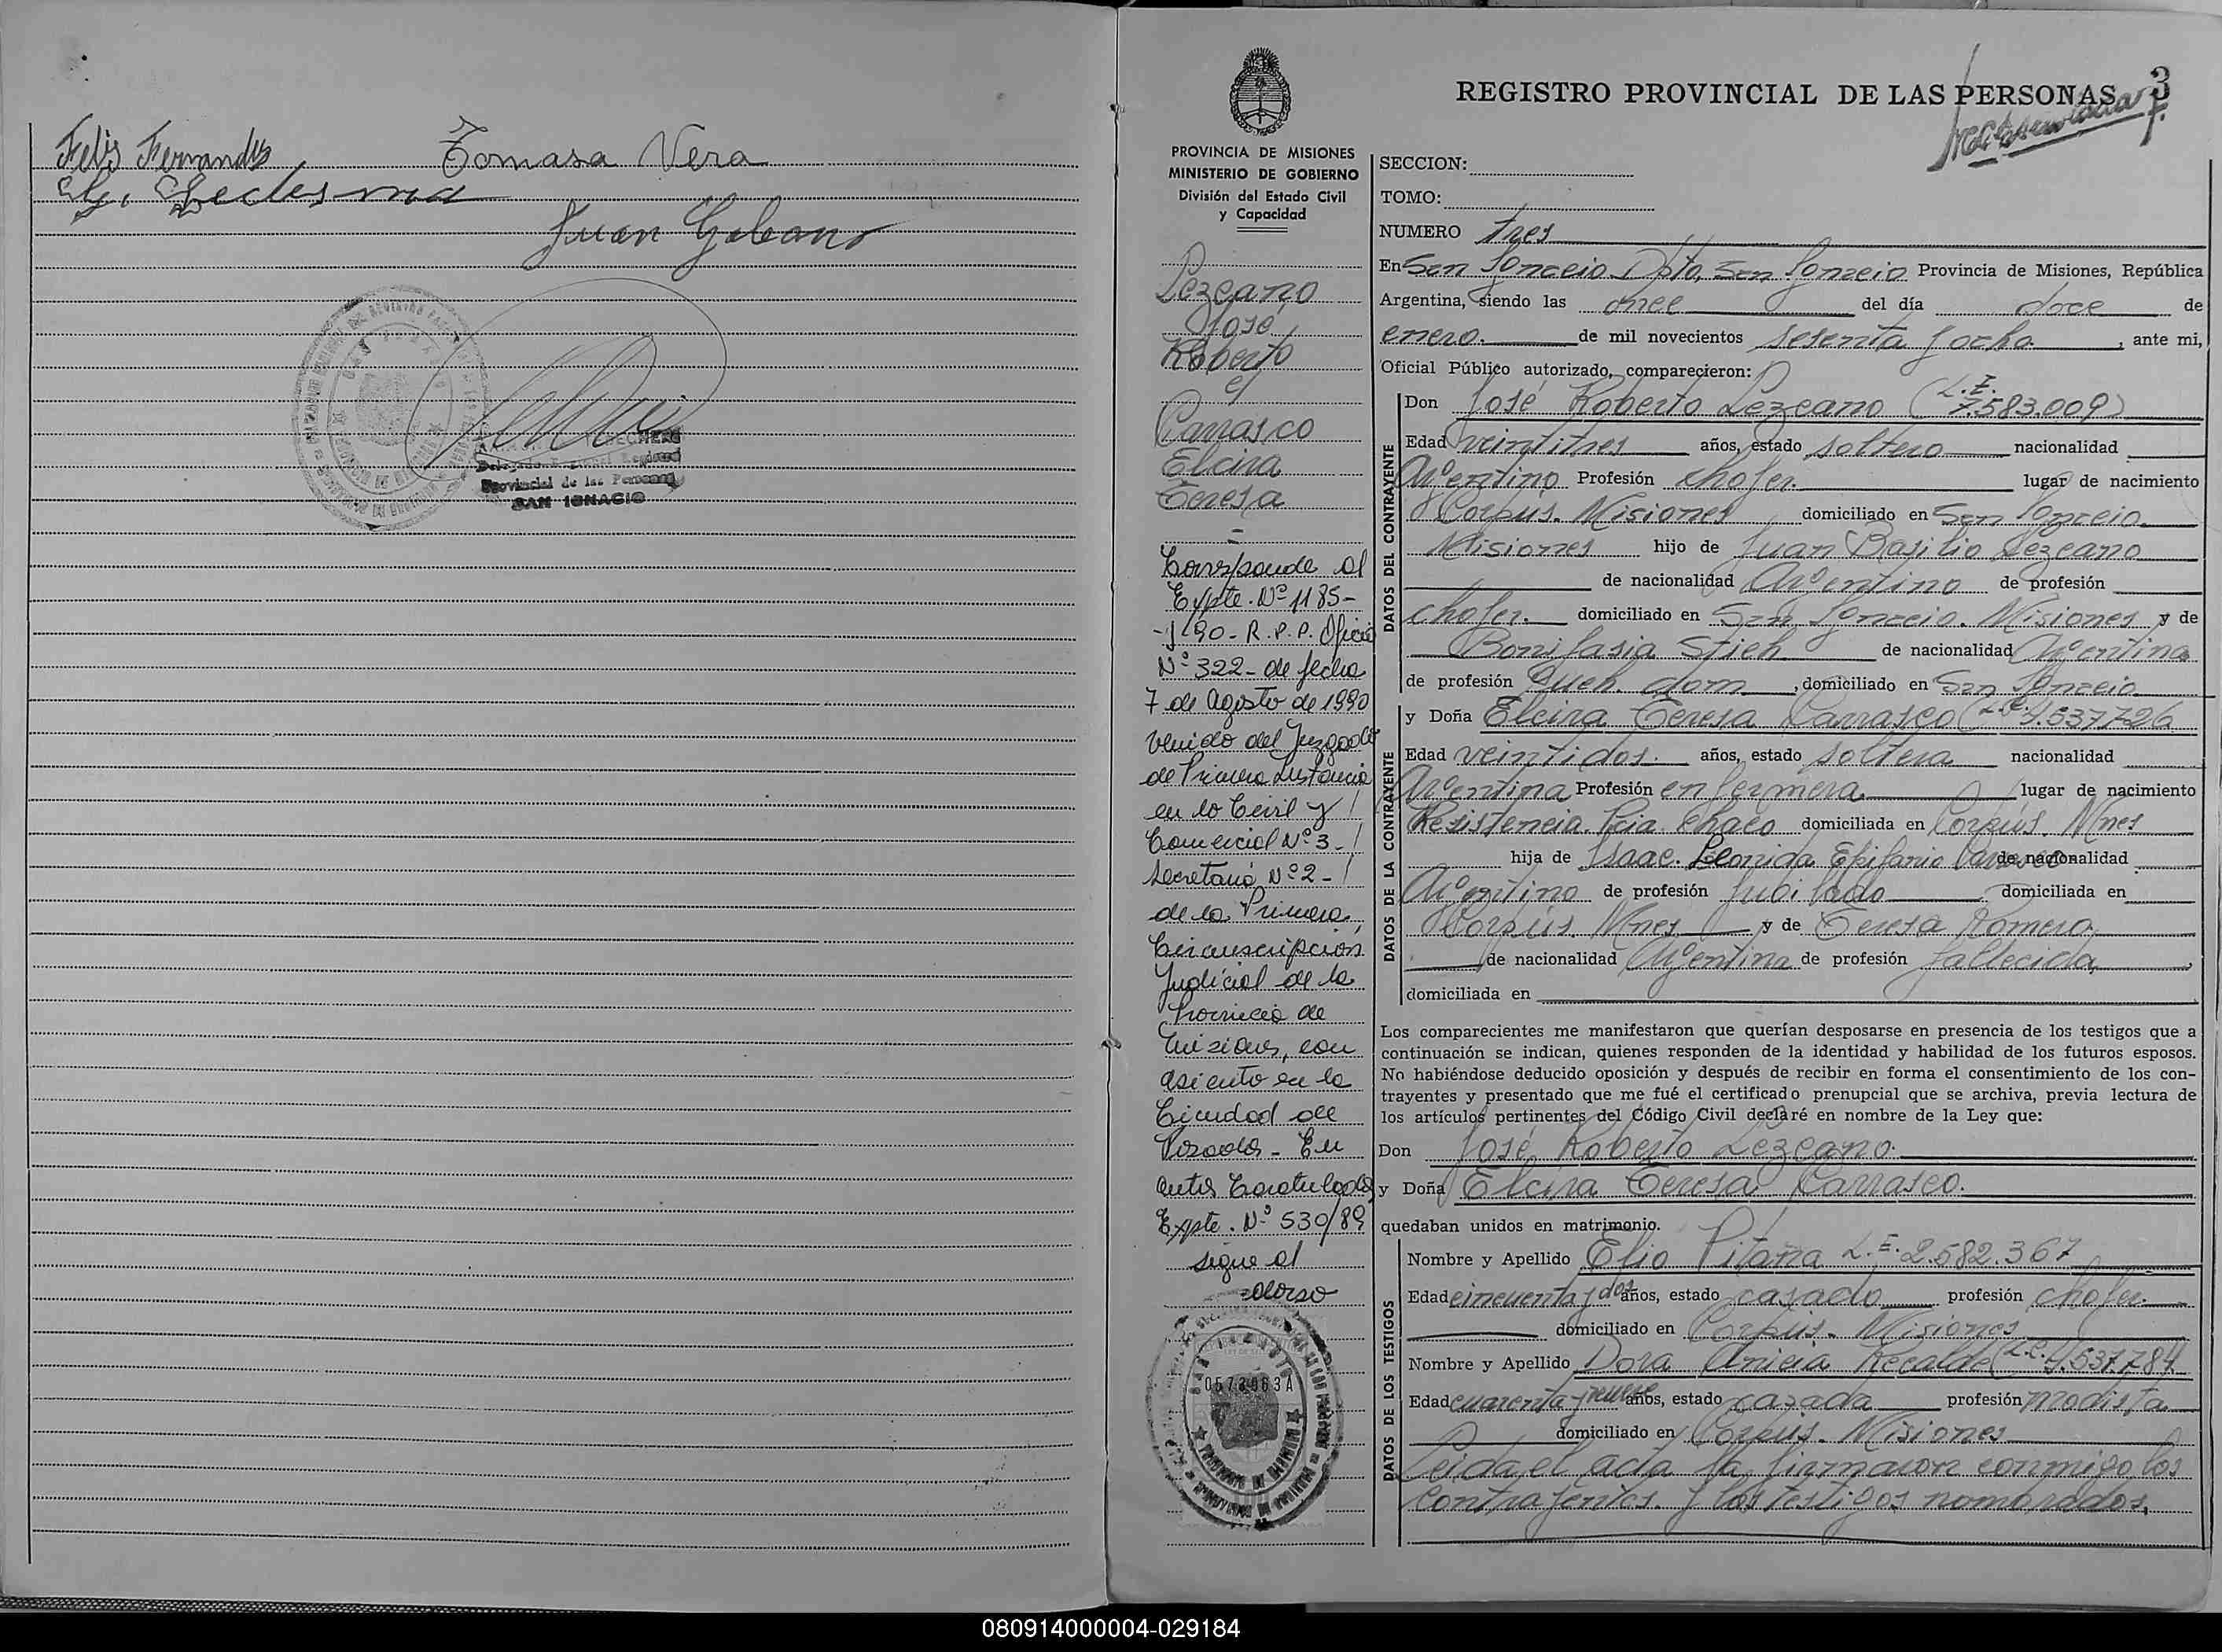 Felis Fernandes Tomasa Vera
Ledesma
Juan Galeano
Provincial de las Personas
SAN IGNACIO
REGISTRO PROVINCIAL DE LAS PERSONAS 3
PROVINCIA DE MISIONES
MINISTERIO DE GOBIERNO
División del Estado Civil
y Capacidad
Lezcano
José
Roberto
y
Carrasco
Elcira
Teresa
=
Corresponde al
Expte. Nº 1185-
-J-90- R.P.P. Oficio
Nº 322- de fecha
7 de Agosto de 1990
venido del Juzgado
de Primera Instancia
en lo Civil y
Comercial Nº 3-
Secretaria Nº 2-
de la Primera
Circunscripción
Judicial de la
Provincia de
Misiones, con
asiento en la
Ciudad de
Posadas- En
autos Caratulados
Expte. Nº 530/89
sigue al
dorso
0572963A
SECCION:
TOMO:
NUMERO tres
En San Ignacio Dpto. San Ignacio Provincia de Misiones, República
Argentina, siendo las once del día doce de
enero. de mil novecientos sesenta y ocho , ante mi,
Oficial Público autorizado, comparecieron:
DATOS DEL CONTRAYENTE
Don José Roberto Lezcano (L.E. 7.583.009)
Edad veintitres años, estado soltero nacionalidad
Argentino Profesión chofer. lugar de nacimiento
Corpus. Misiones domiciliado en San Ignacio
Misiones hijo de Juan Basilio Lezcano
de nacionalidad Argentino de profesión
chofer. domiciliado en San Ignacio. Misiones y de
Bonifasia Stieh de nacionalidad Argentina
de profesión Queh. dom , domiciliado en San Ignacio
DATOS DE LA CONTRAYENTE
y Doña Elcira Teresa Carrasco (L.C. 4.537.726
Edad veintidos. años, estado soltera nacionalidad
Argentina Profesión enfermera lugar de nacimiento
Resistencia. Pcia. Chaco domiciliada en Corpus. Mnes
hija de Isaac. Leonida Epifanio Carrasco de nacionalidad
Argentino de profesión Jubilado domiciliada en
Corpus. Mnes y de Teresa Romero.
de nacionalidad Argentina de profesión fallecida,
domiciliada en
Los comparecientes me manifestaron que querían desposarse en presencia de los testigos que a
continuación se indican, quienes responden de la identidad y habilidad de los futuros esposos.
No habiéndose deducido oposición y después de recibir en forma el consentimiento de los con-
trayentes y presentado que me fué el certificado prenupcial que se archiva, previa lectura de
los artículos pertinentes del Código Civil declaré en nombre de la Ley que:
Don José Roberto Lezcano.
y Doña Elcira Teresa Carrasco.
quedaban unidos en matrimonio.
DATOS DE LOS TESTIGOS
Nombre y Apellido Elio Pitana L.E. 2.582.367
Edad cincuenta y dos años, estado casado profesión chofer.
domiciliado en Corpus. Misiones
Nombre y Apellido Dora Anicia Recalde (L.C. 4.537.784
Edad cuarenta y nueve años, estado casada profesión modista
domiciliado en Corpus. Misiones
Leida el acta la firmaron conmigo los
contrayentes. y los testigos nombrados.
080914000004-029184